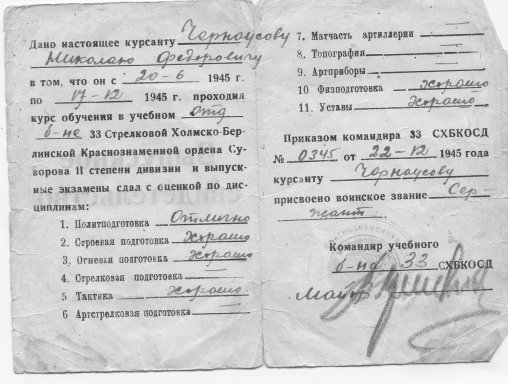 Дано настоящее курсанту Черноусову
Николаю Федоровичу
в том, что он с 20-6 1945 г.
по 17-12 1945 г. проходил
курс обучения в учебном отд
б-не 33 Стрелковой Холмско-Бер-
линской Краснознаменной ордена Су-
ворова II степени дивизии и выпуск-
ные экзамены сдал с оценкой по дис-
циплинам:
1. Политподготовка Отлично
2. Строевая подготовка Хорошо
3. Огневая подготовка Хорошо
4. Стрелковая подготовка
5 Тактика Хорошо
6 Артстрелковая подготовка
7. Матчасть артиллерии
8. Топография
9. Артприборы
10 Физподготовка Хорошо
11. Уставы Хорошо
Приказом командира 33 СХБКОСД
№ 0345 от 22-12 1945 года
курсанту Черноусову
присвоено воинское звание Сер-
жант.
Командир учебного
б-на 33 СХБКОСД
Майор